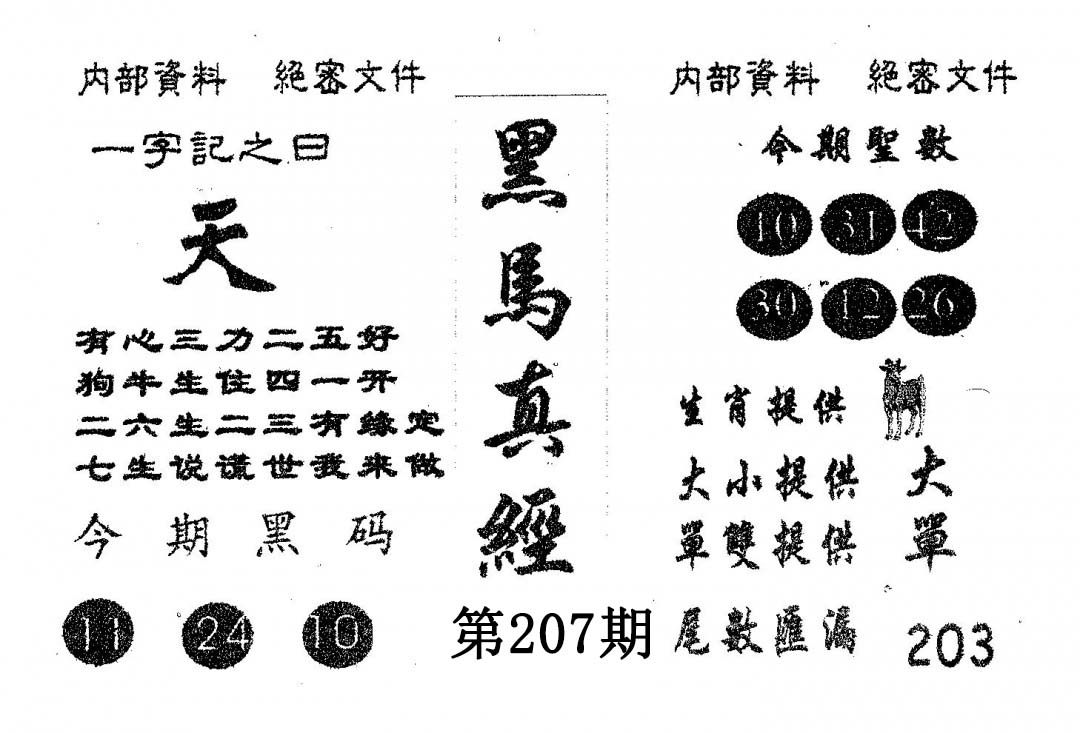 内部資料 絕密文件
一字記之曰
天
有心三力二五好
狗牛生住四一开
二六生二三有缘定
七生说谎世我来做
今期黑码
11 24 10
黑馬真經
第207期
内部資料 絕密文件
今期聖數
10 31 42
30 12 26
生肖提供
大小提供 大
單雙提供 單
尾數匯漏 203